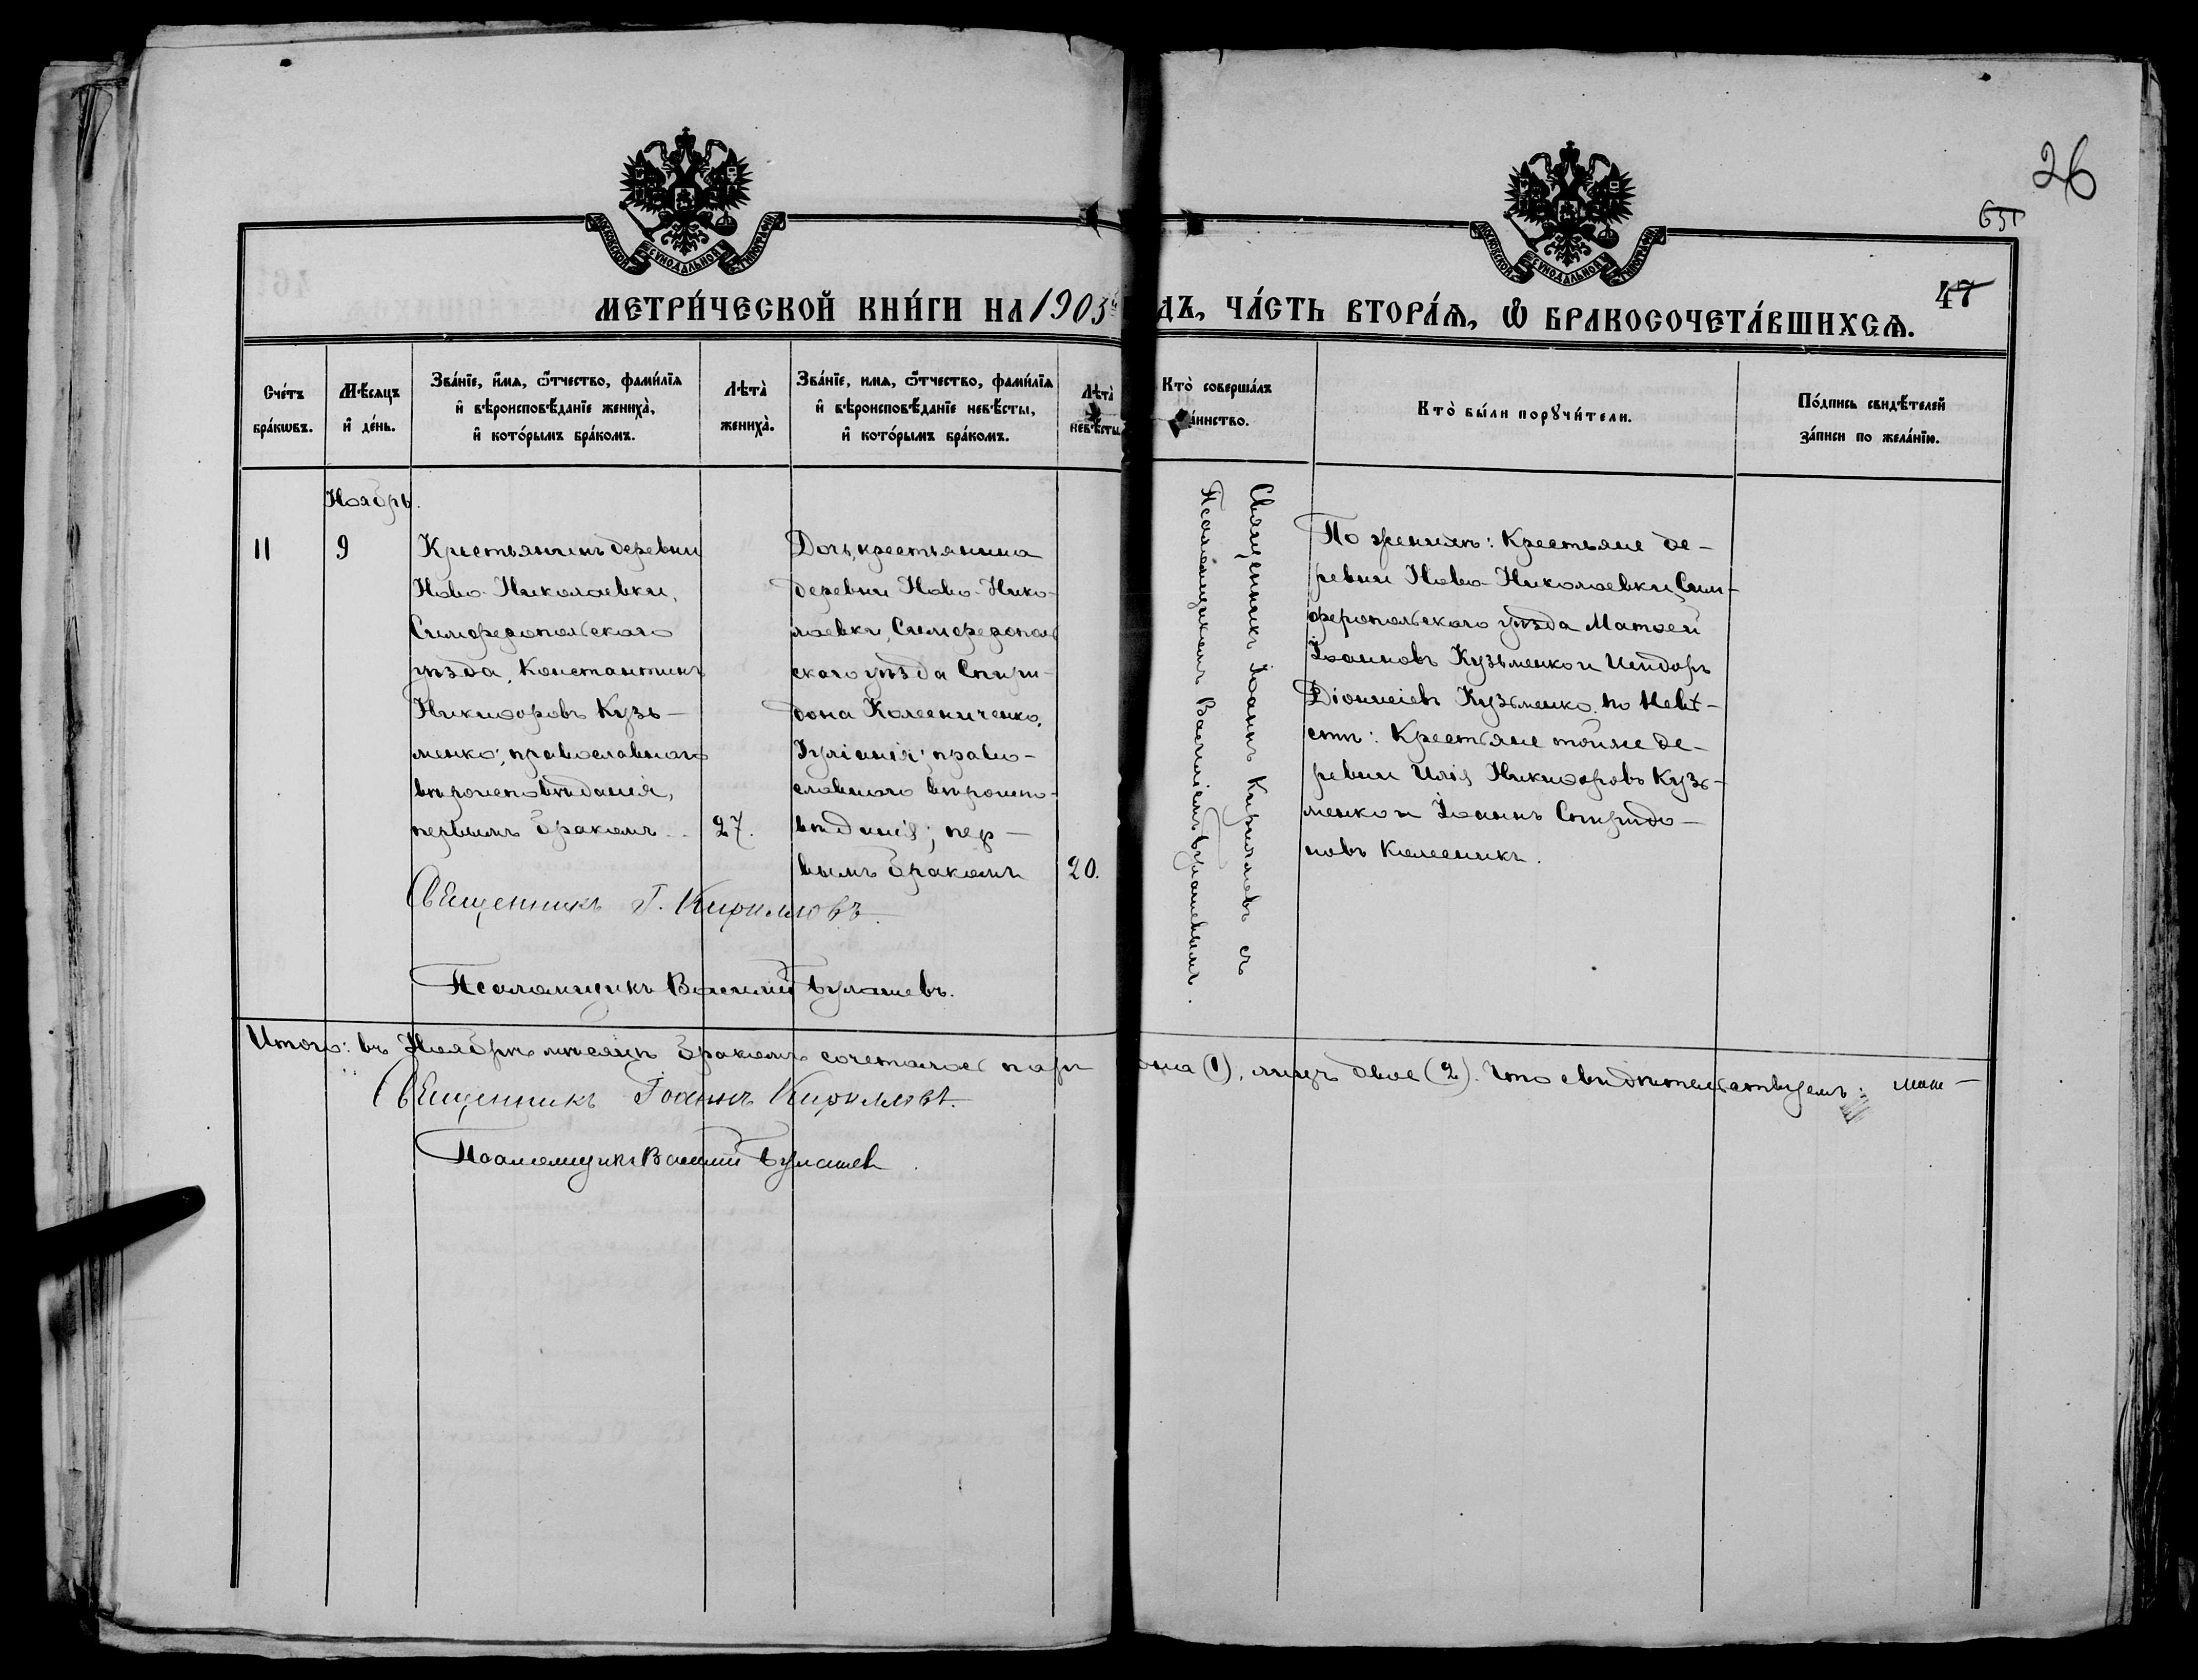 26
651
47
МОСКОВСКОЙ СѴНОДАЛЬНОЙ ТИПОГРАФІИ
МОСКОВСКОЙ СѴНОДАЛЬНОЙ ТИПОГРАФІИ
МЕТРИ́ЧЕСКОЙ КНИ́ГИ НА 1905
ДЪ, ЧА́СТЬ ВТОРА́Ѧ, Ѿ БРАКОСОЧЕТА́ВШИХСѦ.
Сче́тъ
бра́кѡвъ.
Мѣ́сѧцъ
и҆ де́нь.
Зва́нїе, и҆́мѧ, ѻ҆́тчество, фами́лїѧ
и҆ вѣроисповѣ́данїе жениха̀,
и҆ кото́рымъ бра́комъ.
Лѣта̀
жениха̀.
Зва́нїе, имѧ, ѻ҆́тчество, фами́лїѧ
и҆ вѣроисповѣ́данїе невѣ́сты,
и҆ кото́рымъ бра́комъ.
Лѣта̀
невѣ́сты
Кто̀ соверша́лъ
а́инство.
Кто̀ бы́ли порꙋчи́тели.
По́дпись свидѣ́телей
за́писи по жела́нїю.
Ноябрь.
11
9
Крестьянинъ деревни
Ново-Николаевки,
Симферопольскаго
уѣзда, Константинъ
Никифоровъ Кузь-
менко; православнаго
вѣроисповѣданія,
первымъ бракомъ
27.
Дочь крестьянина
деревни Ново-Нико-
лаевки, Симферополь
скаго уѣзда Спири-
дона Колесниченко,
Іуліанія; право-
славнаго вѣроиспо-
вѣданія; пер-
вымъ бракомъ
20.
Священникъ Іоаннъ Кирилловъ съ
Псаломщикомъ Василіемъ Булашевымъ.
По женихѣ: Крестьяне де-
ревни Ново-Николаевки, Сим-
феропольскаго уѣзда Матѳей
Іоанновъ Кузьменко и Исидоръ
Діонисіевъ Кузьменко. по невѣ-
стѣ: Крестьяне тойже де-
ревни Илія Никифоровъ Кузь-
менко и Іоаннъ Спиридо-
новъ Колесникъ.
Священникъ І. Кирилловъ.
Псаломщикъ Василій Булашевъ.
Итого: въ Ноябрѣ мѣсяцѣ бракомъ сочеталось пара
одна (1), лицъ двое (2). Что свидѣтельствуемъ:
Священникъ Іоаннъ Кирилловъ.
Псаломщикъ Василій Булашевъ